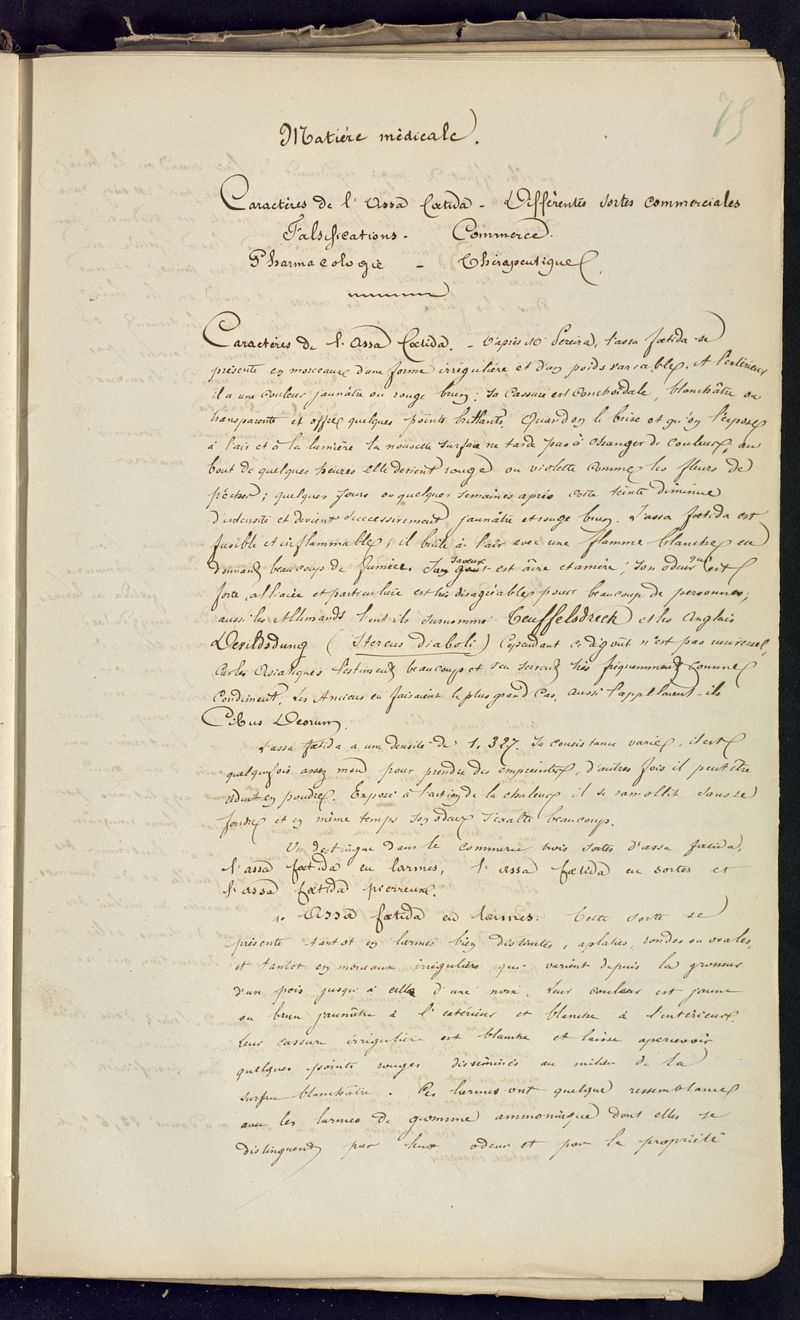 75
Matière médicale.
Caractères de l'Assa foetida - Différentes sortes commerciales
Falsifications - Commerce.
Pharmacologie - Thérapeutique.
Caractères de l'Assa foetida. - D'après Mr Pereira, l'assa foetida se
présente en morceaux d'une forme irrégulière et d'un poids variable. A l'extérieur
il a une couleur jaunâtre ou rouge brun; sa cassure est conchoïdale, blanchâtre ou
transparente et offre quelques points brillants. Quand on le brise et qu'on l'expose
à l'air et à la lumière la nouvelle surface ne tarde pas à changer de couleur, au
bout de quelques heures elle devient rouge ou violette comme les fleurs de
pêcher; quelques jours ou quelques semaines après cette teinte diminue
d'intensité et devient successivement jaunâtre et rouge brun. L'assa foetida est
fusible et inflammable; il brûle à l'air avec une flamme blanche en
donnant beaucoup de fumée. Sa saveur est âcre et amère; son odeur qui est
forte, alliacée et particulière est très désagréable pour beaucoup de personnes;
aussi les Allemands l'ont ils surnommé Teuffelsdreck et les Anglais
Devilsdung (Stercus Diaboli) Cependant ce dégoût n'est pas universel,
car les Asiatiques l'estiment beaucoup et s'en servent très fréquemment comme
condiment. Les Anciens en faisaient le plus grand cas, aussi l'appelaient-ils
Cibus Deorum.
L'assa foetida a une densité de 1,327. Sa consistance varie, il est
quelquefois assez mou pour prendre des empreintes, d'autres fois il peut être
réduit en poudre. Exposé à l'action de la chaleur il se ramollit sans se
fondre et en même temps son odeur s'exalte beaucoup.
On distingue dans le commerce trois sortes d'assa foetida,
l'assa foetida en larmes, l'assa foetida en sortes et
l'assa foetida pierreux.
1º Assa foetida en larmes. Cette sorte se
présente tantôt en larmes bien distinctes, aplaties, rondes ou ovales,
et tantôt en morceaux irréguliers qui varient depuis la grosseur
d'un pois jusqu'à celle d'une noix. Leur couleur est jaune
ou brun jaunâtre à l'extérieur et blanche à l'intérieur.
Leur cassure irrégulière est blanche et laisse apercevoir
quelques points rouges disséminés au milieu de la
surface blanchâtre. Ces larmes ont quelque ressemblance
avec les larmes de gomme ammoniaque dont elles se
distinguent par leur odeur et par la propriété